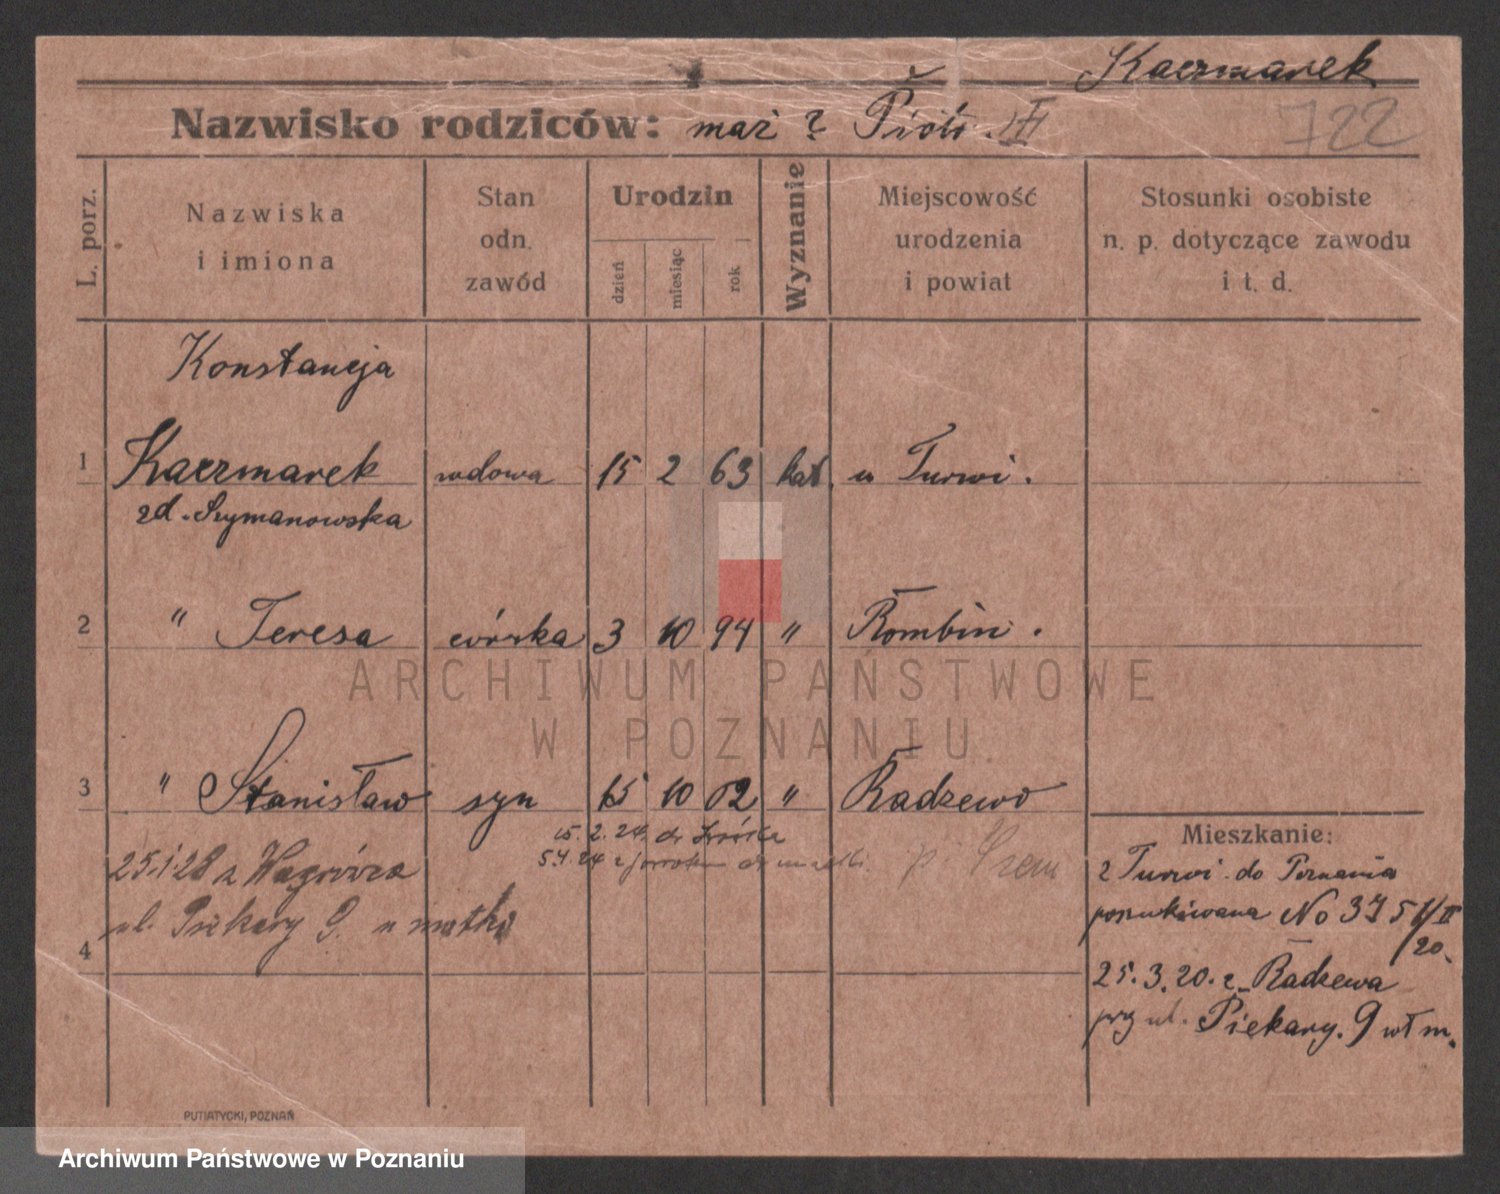 Kaczmarek
Nazwisko rodziców: mąż ? Piotr. III
722
L. porz.
Nazwiska
i imiona
Stan
odn.
zawód
Urodzin
dzień
miesiąc
rok
Wyznanie
Miejscowość
urodzenia
i powiat
Stosunki osobiste
n. p. dotyczące zawodu
i t. d.
Konstancja
1 Kaczmarek wdowa 15 2 63 kat. w Turwi.
zd. Szymanowska
2 " Teresa córka 3 10 94 " Rombin.
3 " Stanisław syn 15 10 02 " Radzewo
15.2.24. do
5.4.24 z do matki.
p. Śrem
25.1.28 z Wągrówca
ul. Piekary 9. u matki
4
Mieszkanie:
z Turwi do Poznania
poszukiwana No 375
20.
25.3.20. z Radzewa
przy ul. Piekary. 9 wł m.
PUTIATYCKI, POZNAŃ
ARCHIWUM PAŃSTWOWE
W POZNANIU
Archiwum Państwowe w Poznaniu